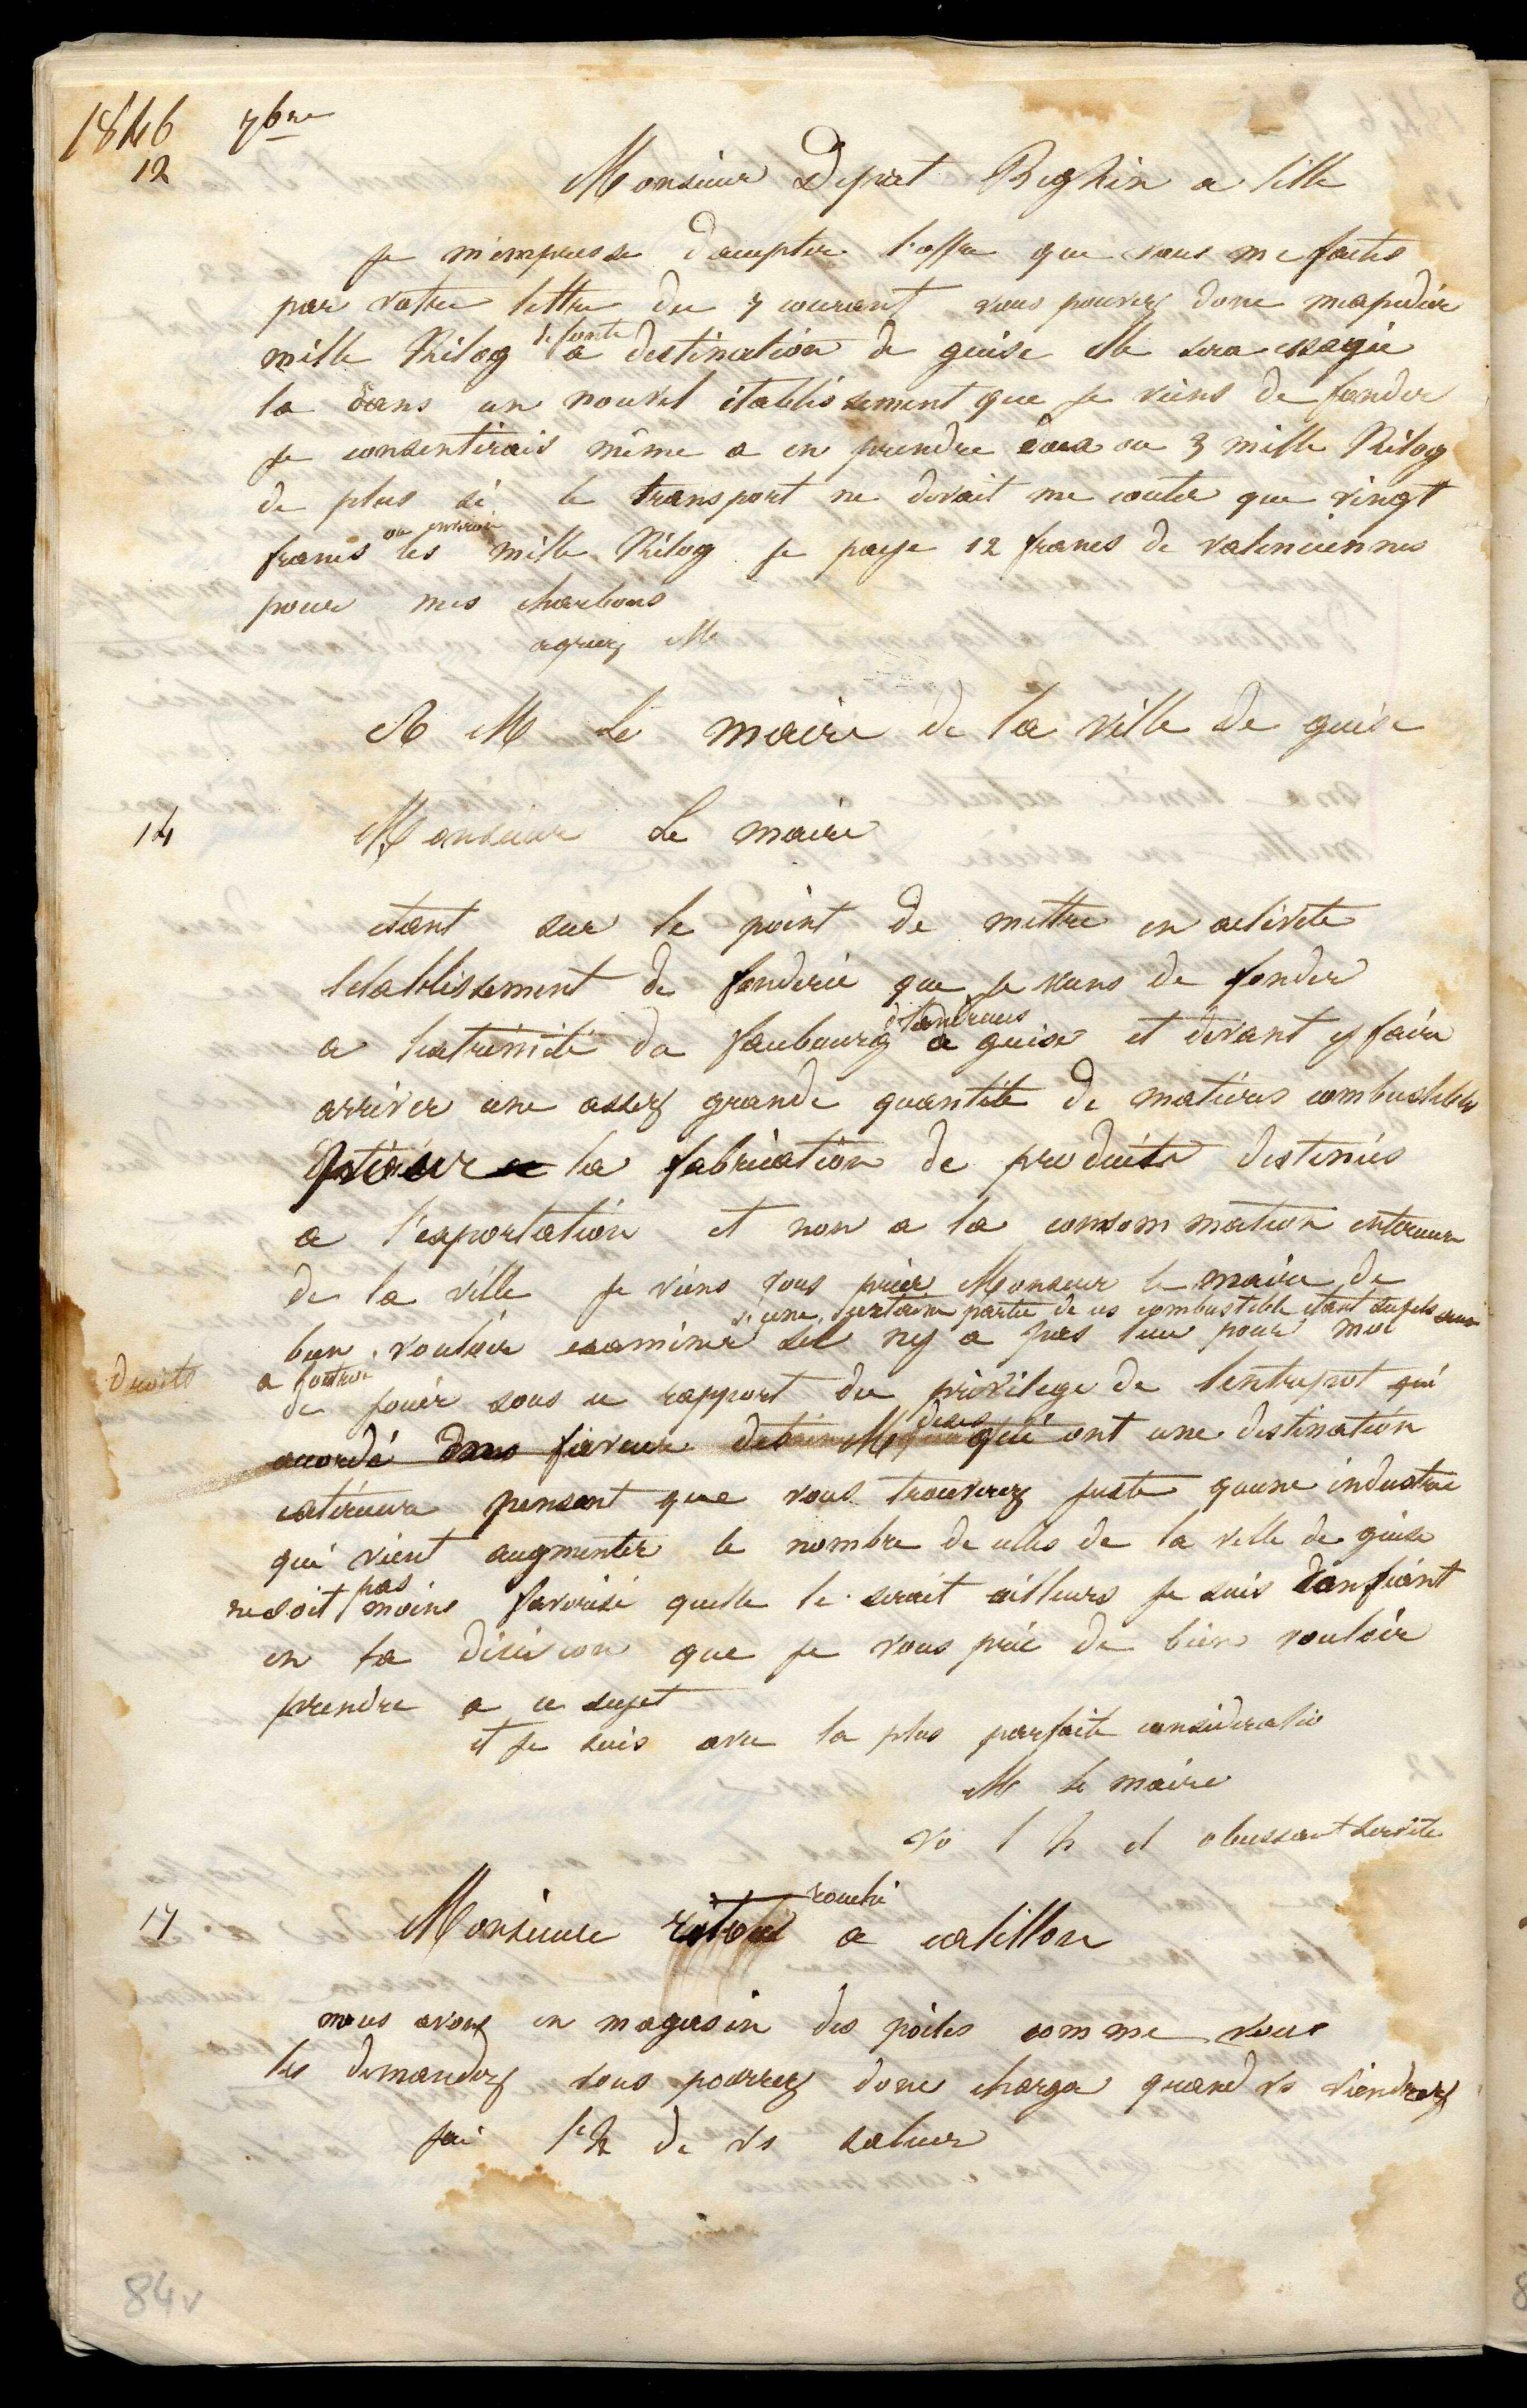 1846 7bre
12
Monsieur Deprat Beghin a lille
je m'empresse d'accepter l'offre que vous me faites
par votre lettre du 7 courant vous pouvez donc mexpedier
mille Kilog de fonte a destination de guise elle sera essayée
la dans un nouvel établissement que je viens de fonder
je consentirais même a en prendre deux ou 3 mille Kilog
de plus si le transport ne devait me couter que vingt
francs ou environ les mille Kilog je paye 12 francs de valenciennes
pour mes charbons
agreez M
A M Le maire de la ville de guise
14 Monsieur Le maire
etant sur le point de mettre en activité
letablissement de fonderie que je viens de fonder
a lextrémité du faubourg de landrecies a guise et devant y faire
arriver une assez grande quantité de matieres combustibles
pour la fabrication de produits destinés
a l'exportation et non a la consommation interieure
de la ville je viens vous prier Monsieur le maire de
bien vouloir examiner si une certaine partie de ces combustible etant sujets aux
droits a loctroi sil ny a pas lieu pour moi
de jouir sous ce rapport du privilege de lentrepot qui
accordé dans faveur des Mdises qui ont une destination
extérieure pensant que vous trouverez juste quune industrie
qui vient augmenter le nombre de celles de la ville de guise
ne soit pas moins favorisé quelle le serait ailleurs je suis confiant
en la décision que je vous prie de bien vouloir
prendre a ce sujet
et je suis avec la plus parfaite consideratio
M le maire
vo t h et obeissant servite
17 Monsieur rouchi a catillon
nous avons en magasin des poëles comme vous
les demandez vous pourrez donc charger quand vs viendrez
jai l'h de vs saluer
84v